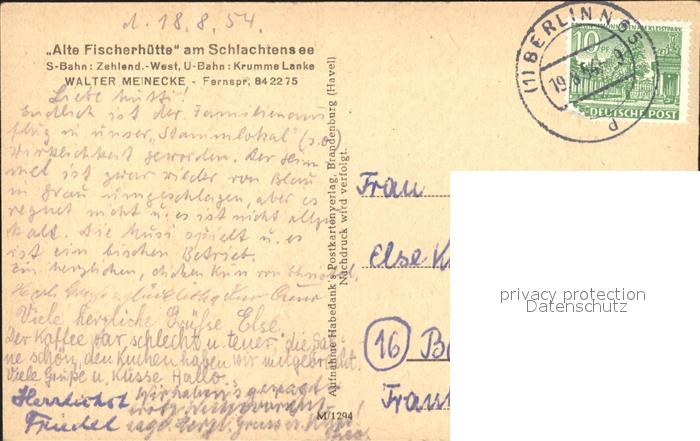 d. 18.8.54.
„Alte Fischerhütte" am Schlachtensee
S-Bahn: Zehlend.-West, U-Bahn: Krumme Lanke
WALTER MEINECKE - Fernspr. 842275
Liebe Mutti!
Endlich ist der Familienaus
flug in unser „Stammlokal" (s.o.)
Wirklichkeit geworden. Der Him
mel ist zwar wieder von Blau
in Grau umgeschlagen, aber es
regnet nicht u. es ist nicht allzu
kalt. Die Musi spielt u. es
ist ein bischen Betrieb.
Ein herzlichen, dicken Kuss von
Viele herzliche Grüsse Else.
Der Kaffee war schlecht u. teuer, die Sa-
ne schön, den Kuchen haben wir mitgebracht.
Viele Grüße u. Küsse
Herzlichst
Friedel
Aufnahme Habedank's Postkartenverlag, Brandenburg (Havel)
Nachdruck wird verfolgt.
M/1294
(1) BERLIN N65
19.8.54
10 PF
DEUTSCHE POST
Frau
Else K
16 B
Frank
privacy protection
Datenschutz